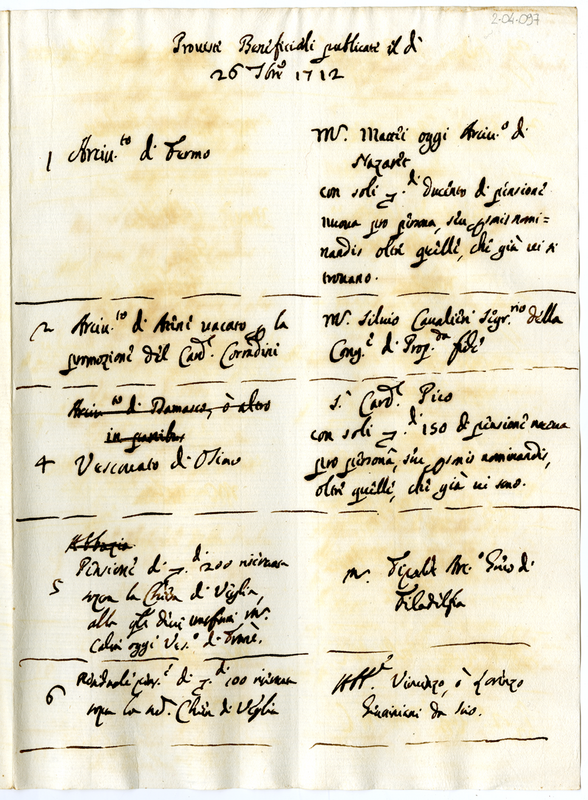 2.04.097
Proviste Beneficiali publicate il dì
26 7bre 1712
1 Arciu.to di Fermo
M.r Mattei oggi Arciu.o di
Nazaret
con soli di ducento di pensione
nuova pro persona, siu nomi=
nandis oltre quelle, che già vi si
trovano.
2 Arciu.to di Atene vacato p la
promozione del Card.l Corradini
M.r Silvio Cavalieri Segr.rio della
Cong.e di Prop.da fide
Arciu.to di Damasco, ò altro
in partibus
4 Vescovato di Osimo
S.r Card.l Pico
con soli di 150 di pensione nuova
pro persona, siu nominandis,
oltre quelle, che già vi sono.
Abbazia
5 Pensione di di 200 riservata
sopra la Chiesa di Veglia,
alla qle
oggi Ves.o di
M.r Arc.o Greco di
Filadelfia
6 di di 100 riservata
sopra la med. Chiesa di Veglia
Abb.e Vincenzo, ò Lorenzo
Giustiniani da Scio.